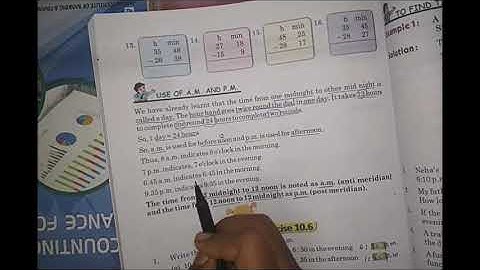 13. h min
35 48
- 26 38
14. h min
27 18
- 15 9
15. h min
48 25
- 28 17
16. h min
35 45
- 28 27
USE OF A.M. AND P.M.
We have already learnt that the time from one midnight to other mid night is
called a day. The hour hand goes twice round the dial in one day. It takes 12 hours
to complete one round 24 hours to complete two rounds.
So, 1 day = 24 hours
So, a.m. is used for before noon and p.m. is used for afternoon.
Thus, 6 a.m. indicates 6 o'clock in the morning.
7 p.m. indicates, 7 o'clock in the evening
6.45 a.m. indicates 6:45 in the morning.
9.35 p.m. indicates 9:35 in the evening.
The time from 12 midnight to 12 noon is noted as a.m. (anti meridian)
and the time from 12 noon to 12 midnight as p.m. (post meridian).
Exercise 10.6
1. Write the
in the evening
TO FIND T
Example 1: A
Solution: T
Neha's
6:10 p.m.
COUNTING
ANCE FO